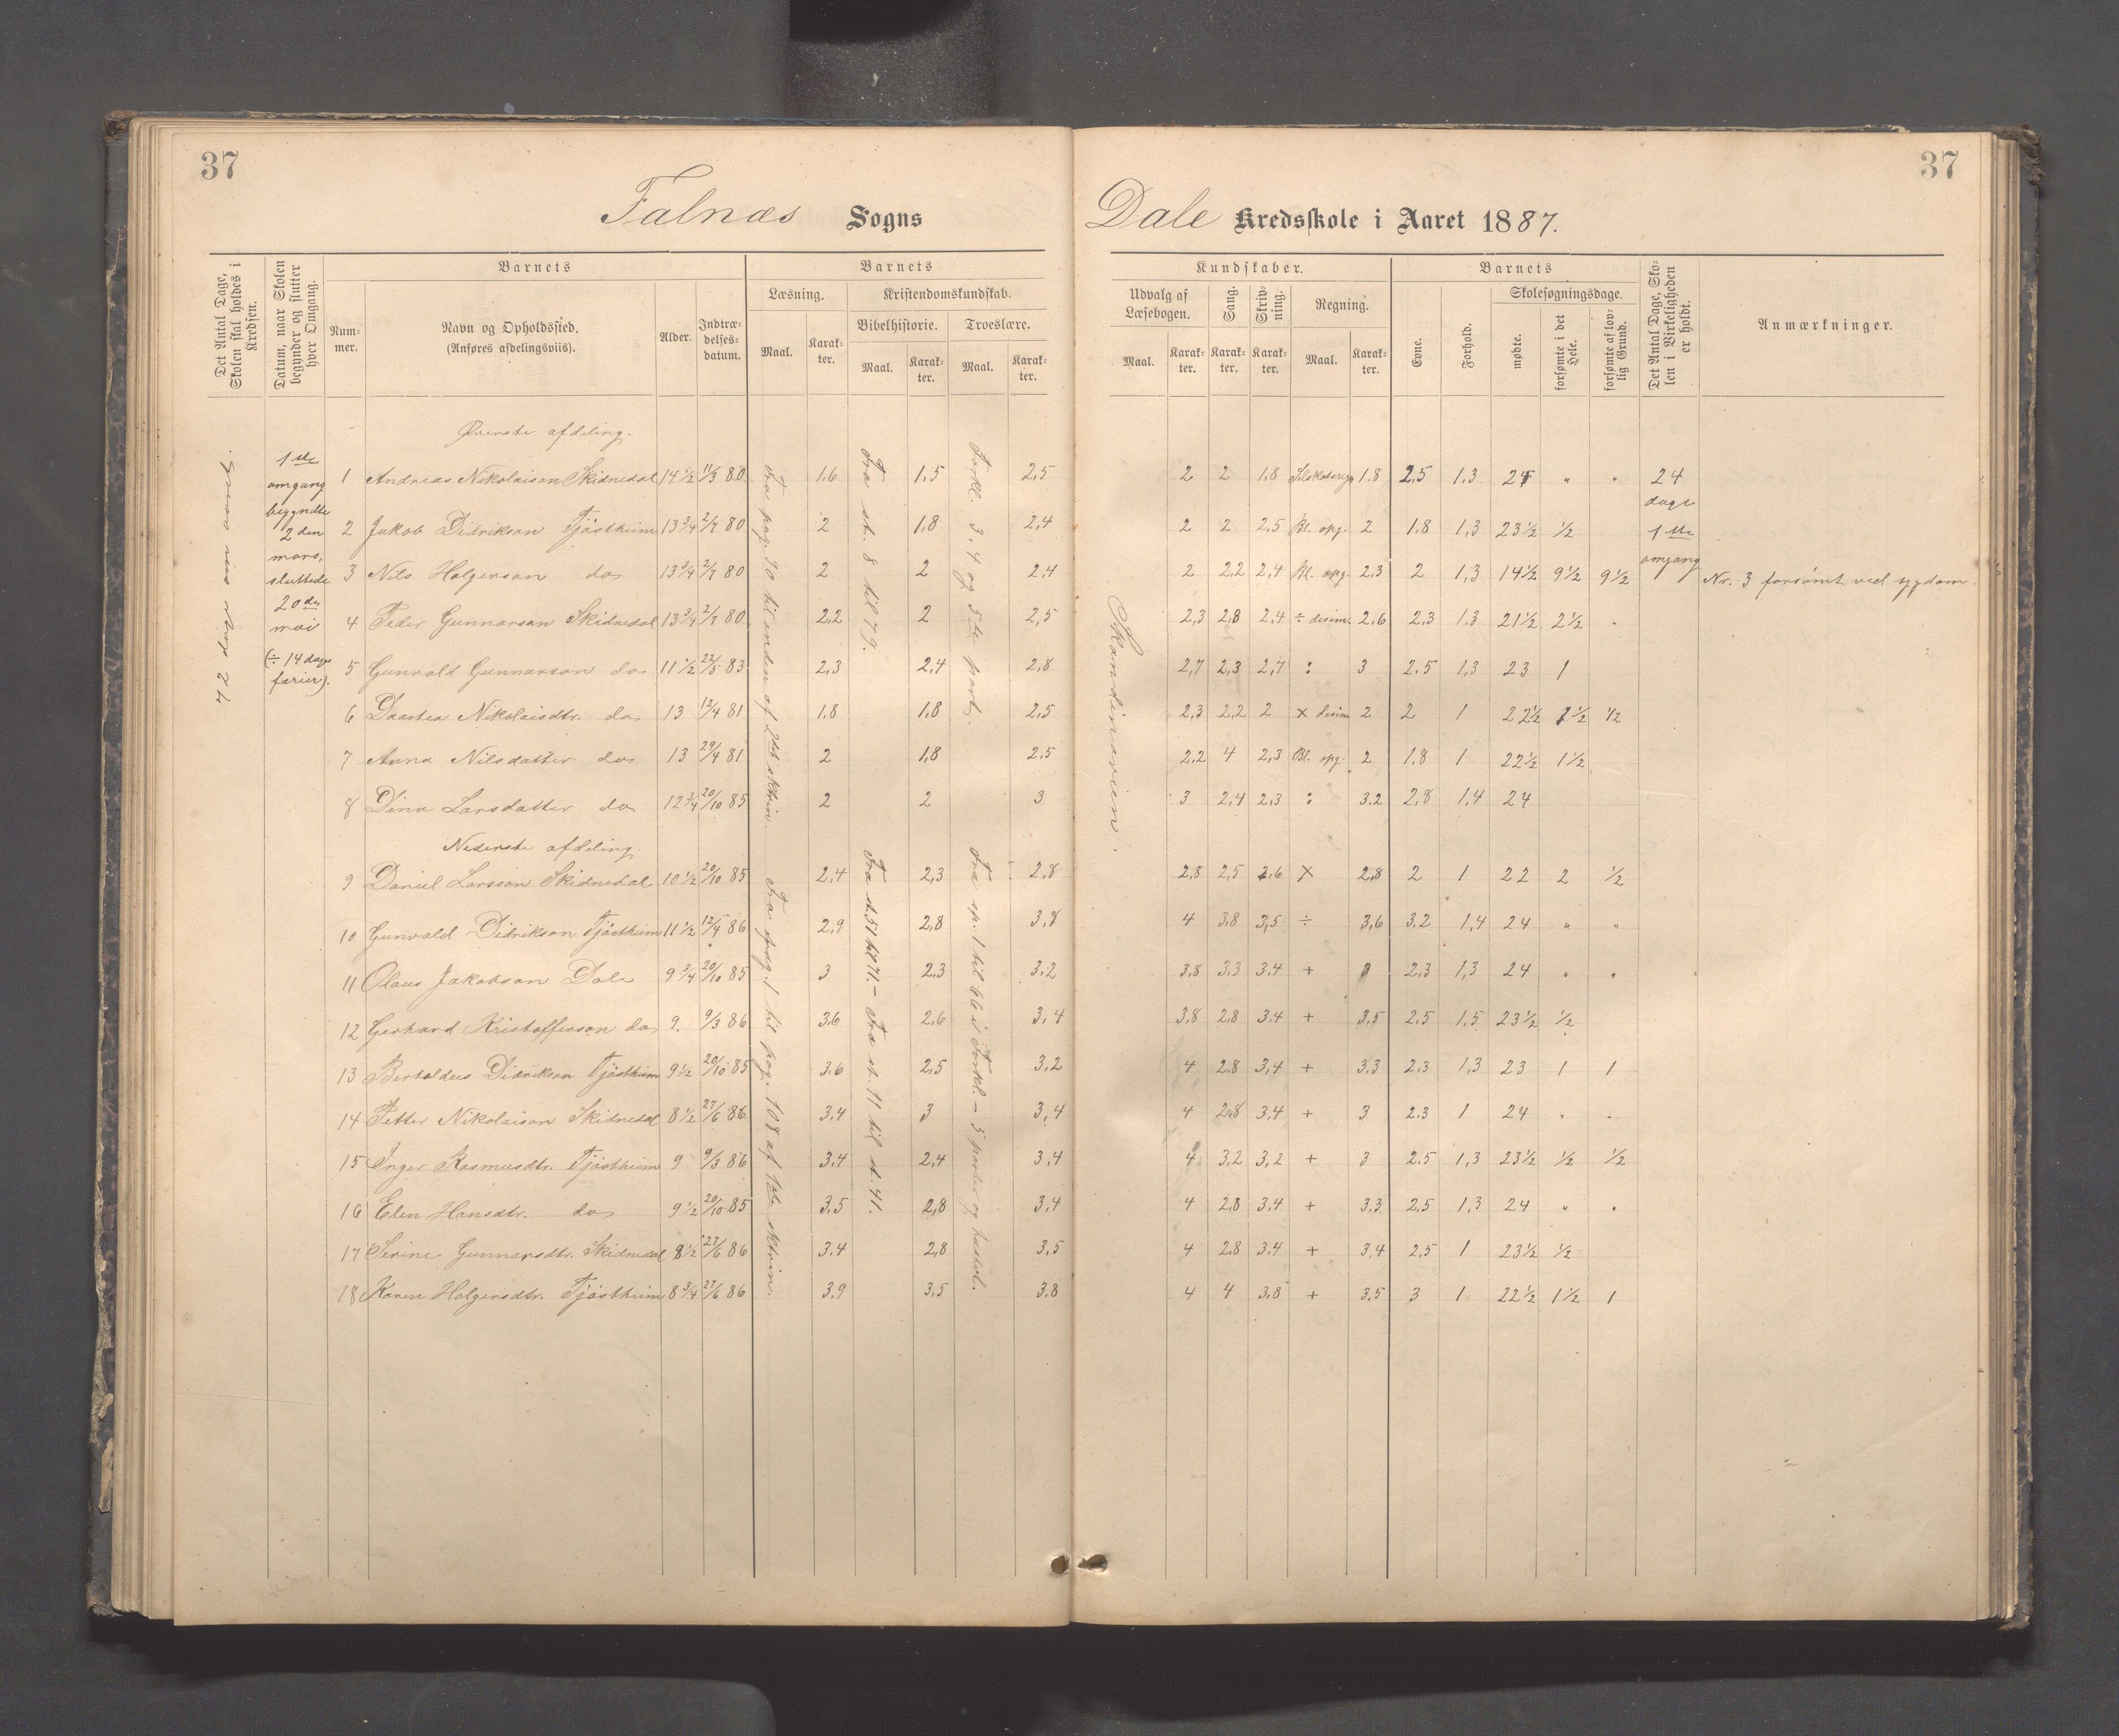 37
37
Falnæs Sogns
Dale Kredsskole i Aaret 1887.
Det Antal Dage, Skolen skal holdes i Kredsen.
Datum, naar Skolen begynder og slutter hver Omgang.
Barnets
Nummer.
Navn og Opholdssted.
(Anføres afdelingsviis).
Alder.
Indtrædelsesdatum.
Barnets
Læsning.
Maal.
Karakter.
Kristendomskundskab.
Bibelhistorie.
Maal.
Karakter.
Troeslære.
Maal.
Karakter.
Kundskaber.
Udvalg af Læsebogen.
Maal.
Karakter.
Sang.
Karakter.
Skrivning.
Karakter.
Regning.
Maal.
Karakter.
Barnets
Evne.
Forhold.
Skolesøgningsdage.
mødte.
forsømte i det Hele.
forsømte af lovlig Grund.
Det Antal Dage, Skolen i Virkeligheden er holdt.
Anmærkninger.
1ste omgang begyndte 2den mars, sluttede 20de mai (÷ 14 dage færier).
Øverste afdeling.
Fra pag. 90 til enden af 2det sktrin.
Fra st. 8 til 79.
Forkl. 3, 4 og 5te part.
Skandinavien.
1 Andreas Nikolaison Skidnedal 14 1/2 11/3 80 1.6 1,5 2,5 2 2 1.8 1.8 2.5 1.3 24 " "
24 dage 1ste omgang
2 Jakob Didrikson Tjöstheim 13 3/4 2/7 80 2 1,8 2,4 2 2 2.5 Bl. opg. 2 1.8 1,3 23 1/2 1/2
3 Nils Holgerson do 13 3/4 2/7 80 2 2 2,4 2 2,2 2,4 Bl. opg. 2,3 2 1,3 14 1/2 9 1/2 9 1/2 Nr. 3 forsømt ved sygdom.
4 Peder Gunnarson Skidnedal 13 3/4 2/7 80 2,2 2 2,5 2,3 2,8 2,4 ÷ desim. 2,6 2,3 1.3 21 1/2 2 1/2
5 Gunvald Gunnarson do 11 1/2 22/5 83 2,3 2,4 2,8 2,7 2,3 2,7 : 3 2.5 1,3 23 1
6 Daartea Nikolaisdtr. do 13 12/4 81 1.8 1.8 2,5 2,3 2,2 2 × desim 2 2 1 22 1/2 1 1/2 1/2
7 Anna Nilsdatter do 13 29/4 81 2 1,8 2.5 2.2 4 2,3 Bl. opg. 2 1.8 1 22 1/2 1 1/2
8 Dina Larsdatter do 12 3/4 20/10 85 2 2 3 3 2,4 2.3 : 3.2 2,8 1,4 24
Nederste afdeling.
Fra pag. 1 til pag. 108 af 1ste sktrin.
Fra st. 51 til 71. – Fra st. 11 til st. 41.
Fra sp. 1 til 66 i Forkl. – 5 parter og hustvl.
9 Daniel Larsson Skidnedal 10 1/2 20/10 85 2,4 2,3 2.8 2,8 2,5 2.6 × 2,8 2 1 22 2 1/2
10 Gunvald Didrikson Tjöstheim 11 1/2 12/4 86 2,9 2,8 3,8 4 3,8 3,5 ÷ 3,6 3.2 1,4 24 " "
11 Olaus Jakobson Dale 9 3/4 20/10 85 3 2.3 3.2 3,8 3.3 3.4 + 3 2.3 1,3 24 " "
12 Gerhard Kristofferson do 9. 9/3 86 3.6 2.6 3,4 3.8 2.8 3.4 + 3,5 2,5 1.5 23 1/2 1/2
13 Bertoldus Didrikson Tjöstheim 9 1/2 20/10 85 3.6 2,5 3.2 4 2.8 3,4 + 3.3 2.3 1.3 23 1 1
14 Petter Nikolaison Skidnedal 8 1/2 27/6 86 3,4 3 3,4 4 2.8 3,4 + 3 2.3 1 24 " "
15 Inger Rasmusdtr. Tjöstheim 9 9/3 86 3,4 2,4 3,4 4 3,2 3,2 + 3 2.5 1,3 23 1/2 1/2 1/2
16 Elen Hansdtr. do 9 1/2 20/10 85 3,5 2,8 3,4 4 2,8 3.4 + 3.3 2,5 1,3 24 " "
17 Serine Gunnarsdtr. Skidnedal 8 1/2 27/6 86 3.4 2,8 3,5 4 2.8 3,4 + 3,4 2,5 1 23 1/2 1/2
18 Karen Holgersdtr. Tjöstheim 8 3/4 27/6 86 3,9 3,5 3.8 4 4 3.8 + 3,5 3 1 22 1/2 1 1/2 1